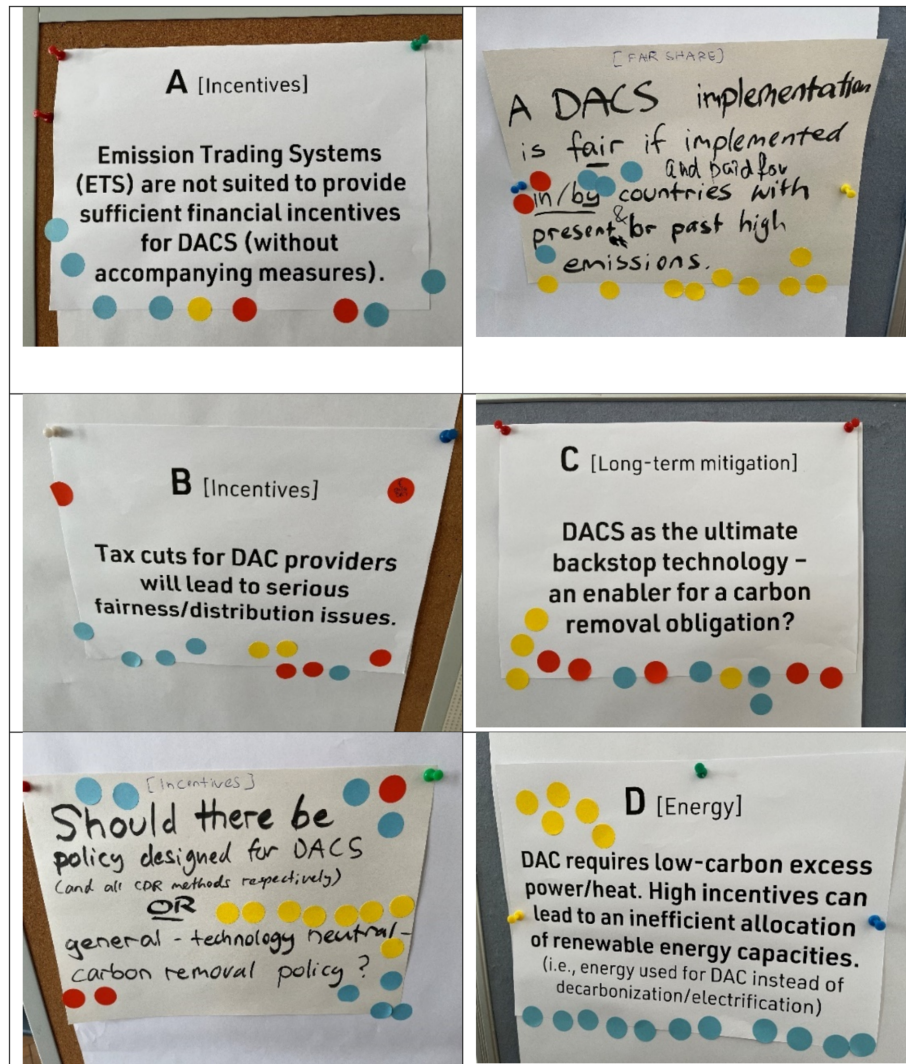 A [Incentives]
Emission Trading Systems
(ETS) are not suited to provide
sufficient financial incentives
for DACS (without
accompanying measures).
[FAIR SHARE]
A DACS implementation
is fair if implemented
and paid for
in/by countries with
present & or past high
emissions.
B [Incentives]
Tax cuts for DAC providers
will lead to serious
fairness/distribution issues.
C [Long-term mitigation]
DACS as the ultimate
backstop technology –
an enabler for a carbon
removal obligation?
[Incentives]
Should there be
policy designed for DACS
(and all CDR methods respectively)
OR
general - technology neutral -
carbon removal policy?
D [Energy]
DAC requires low-carbon excess
power/heat. High incentives can
lead to an inefficient allocation
of renewable energy capacities.
(i.e., energy used for DAC instead of
decarbonization/electrification)